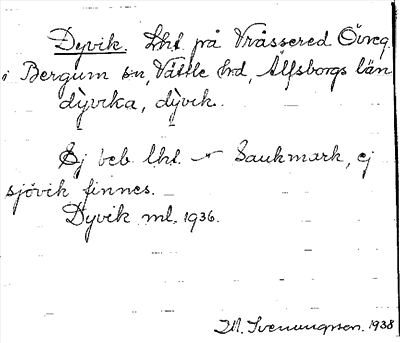 Dyvik. Lht på Vråssered Övreg.
i Bergum sn, Vättle hd, Älfsborgs län
dỳvika, dỳvik.
Ej beb. lht. Sankmark, ej
sjövik finnes.
Dyvik ml. 1936.
M. Svenungsson. 1938